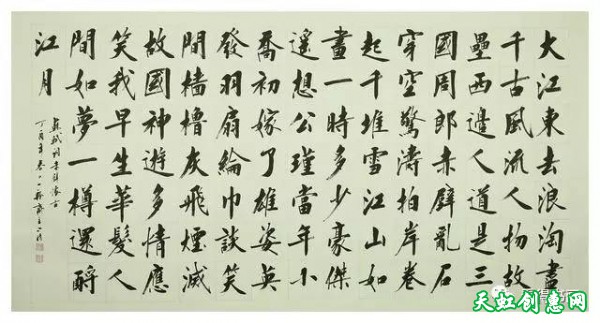 大江東去浪淘盡
千古風流人物故
壘西邊人道是三
國周郎赤壁亂石
穿空驚濤拍岸卷
起千堆雪江山如
畫一時多少豪傑
遙想公瑾當年小
喬初嫁了雄姿英
發羽扇綸巾談笑
間檣櫓灰飛煙滅
故國神遊多情應
笑我早生華髮人
間如夢一樽還酹
江月
蘇軾詞赤壁懷古
丁酉年春
天虹创惠网